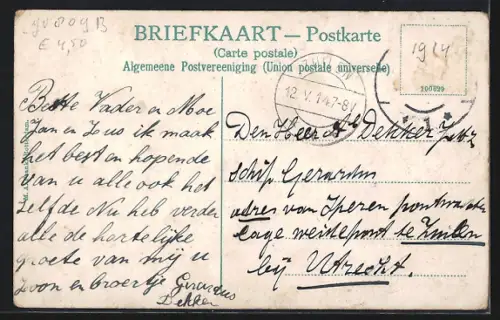 E 4,50
BRIEFKAART — Postkarte
(Carte postale)
Algemeene Postvereeniging (Union postale universelle)
1914
100829
12.V.14 7-8V
1
Beste Vader en Moe
Jan en Zus ik maak
het best en hopende
van u alle ook het
zelfde Nu heb verder
alle de hartelijke
groete van mij u
zoon en broertje Gerardus
Dekker
Den Heer A Dekker
schip Gerardus
adres van
lage weidepont te Zuilen
bij Utrecht.